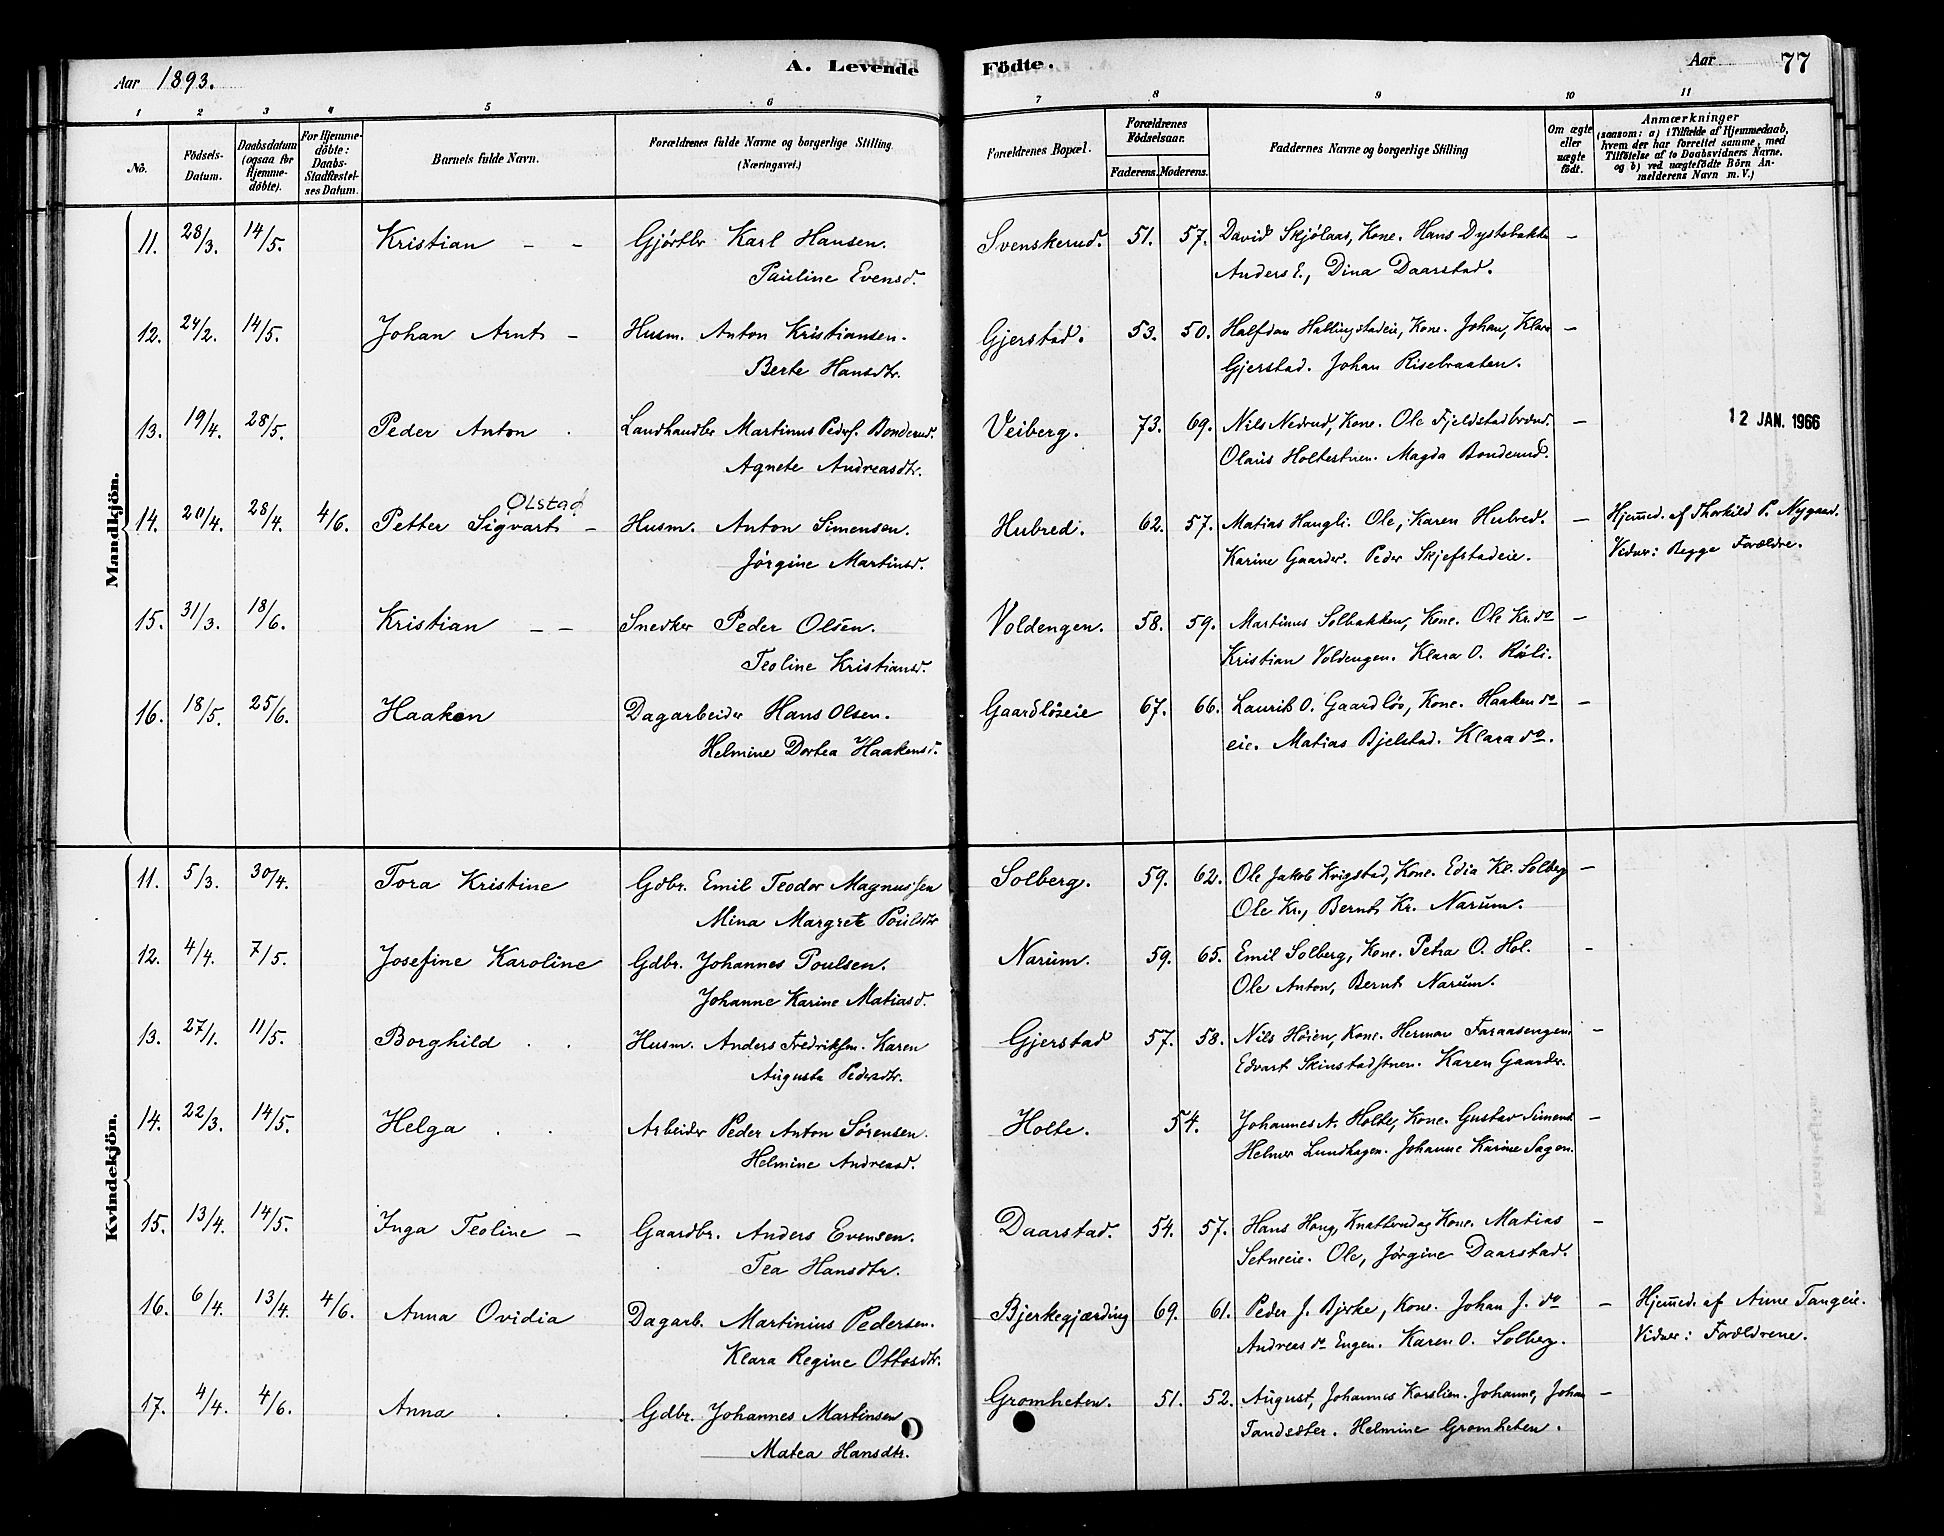 Aar 1893. A. Levende Födte. Aar 77
1 2 3 4 5 6 7 8 9 10 11
No.
Födsels-Datum.
Daabsdatum (ogsaa for Hjemme-döbte).
For Hjemme-döbte: Daabs-Stadfæstel-ses Datum.
Barnets fulde Navn.
Forældrenes fulde Navne og borgerlige Stilling (Næringsvei.)
Forældrenes Bopæl.
Forældrenes Födselsaar.
Faderens. Moderens.
Faddernes Navne og borgerlige Stilling
Om ægte eller uægte födt.
Anmærkninger
(saasom: a) i Tilfælde af Hjemmedaab,
hvem der har forrettet samme, med
Tilföielse af to Daabsvidners Navne.
og b) ved uægtefödte Börn An-
melderens Navn m. V.)
Mandkjön.
11. 28/3. 14/5. Kristian - - Gjørtler Karl Hansen. Svenskerud. 51. 57. David Skjölaas, Kone. Hans Dystebakke -
Pauline Evensd. Anders E., Dina Daarstad.
12. 24/2. 14/5. Johan Arnt - Husm. Anton Kristiansen. Gjerstad. 53. 50. Halfdan Hallingstadeie, Kone. Johan, Klara -
Berte Hansdtr. Gjerstad. Johan Risebraaten.
13. 19/4. 28/5. Peder Anton . Landhandler Martinus Peders. Bonderud. Veiberg. 73. 69. Nils Nedrud, Kone. Ole Fjeldstadbraad. - 12 JAN. 1966
Agnete Andreasdtr. Olaus Holtestuen. Magda Bonderud.
Olstad
14. 20/4. 28/4. 4/6. Petter Sigvart - Husm. Anton Simensen. Hubred. 62. 57. Matias Haugli. Ole, Karen Hubred. - Hjemmed. af Thorkild P. Nygaard.
Jørgine Martinsd. Karine Gaarder. Peder Skjefstadeie. Vidner: Begge Forældre.
15. 31/3. 18/6. Kristian - - Snedker Peder Olsen. Voldengen. 58. 59. Martinus Solbakken, Kone. Ole Kr. do -
Teoline Kristiansd. Kristian Voldengen. Klara O. Röli.
16. 18/5. 25/6. Haaken Dagarbeider Hans Olsen. Gaardløseie 67. 66. Laurits O. Gaardløs, Kone. Haaken do -
Helmine Dortea Haakensd. eie. Matias Bjelstad. Klara do.
Kvindekjön.
11. 5/3. 30/4. Tora Kristine Gdbr. Emil Teodor Magnussen Solberg. 59. 62. Ole Jakob Krigstad, Kone. Edia Kl. Solberg -
Mina Margrete Poulsdtr Ole Kr., Bernt Kr. Narum.
12. 4/4. 7/5. Josefine Karoline Gdbr. Johannes Poulsen. Narum. 59. 65. Emil Solberg, Kone. Petra O. Hol. -
Johanne Karine Matiasd. Ole Anton, Bernt Narum.
13. 27/1. 11/5. Borghild . . Husm. Anders Fredriksen. Karen Gjerstad 57. 58. Nils Höien, Kone. Herman Faraasengen -
Augusta Pedersdtr. Edvart Skinstadstuen. Karen Gaarder.
14. 22/3. 14/5. Helga . . Arbeider Peder Anton Sørensen. Holte. 54. Johannes A. Holte, Kone. Gustav Simens. -
Helmine Andreasd. Helmer Lundhagen. Johanne Karine Sagen.
15. 13/4. 14/5. Inga Teoline - Gaardbr. Anders Evensen. Daarstad. 54. 57. Hans Haug, Kone. Matias -
Tea Hansdtr. Setneeie. Ole, Jørgine Daarstad.
16. 6/4. 13/4. 4/6. Anna Ovidia Dagarb. Martinius Pedersen. Bjerkegjærding 69. 61. Peder J. Bjerke, Kone. Johan J. do - Hjemmed. af Anne Tangeie.
Klara Regine Ottosdtr. Andreas do Engen. Karen O. Solberg. Vidner: Forældrene.
17. 4/4. 4/6. Anna . . Gdbr. Johannes Martinsen Gromheten. 51. 52. August, Johannes Korslien. Johanne, Johan -
Matea Hansdtr. Tandsæter. Helmine Gromheten.